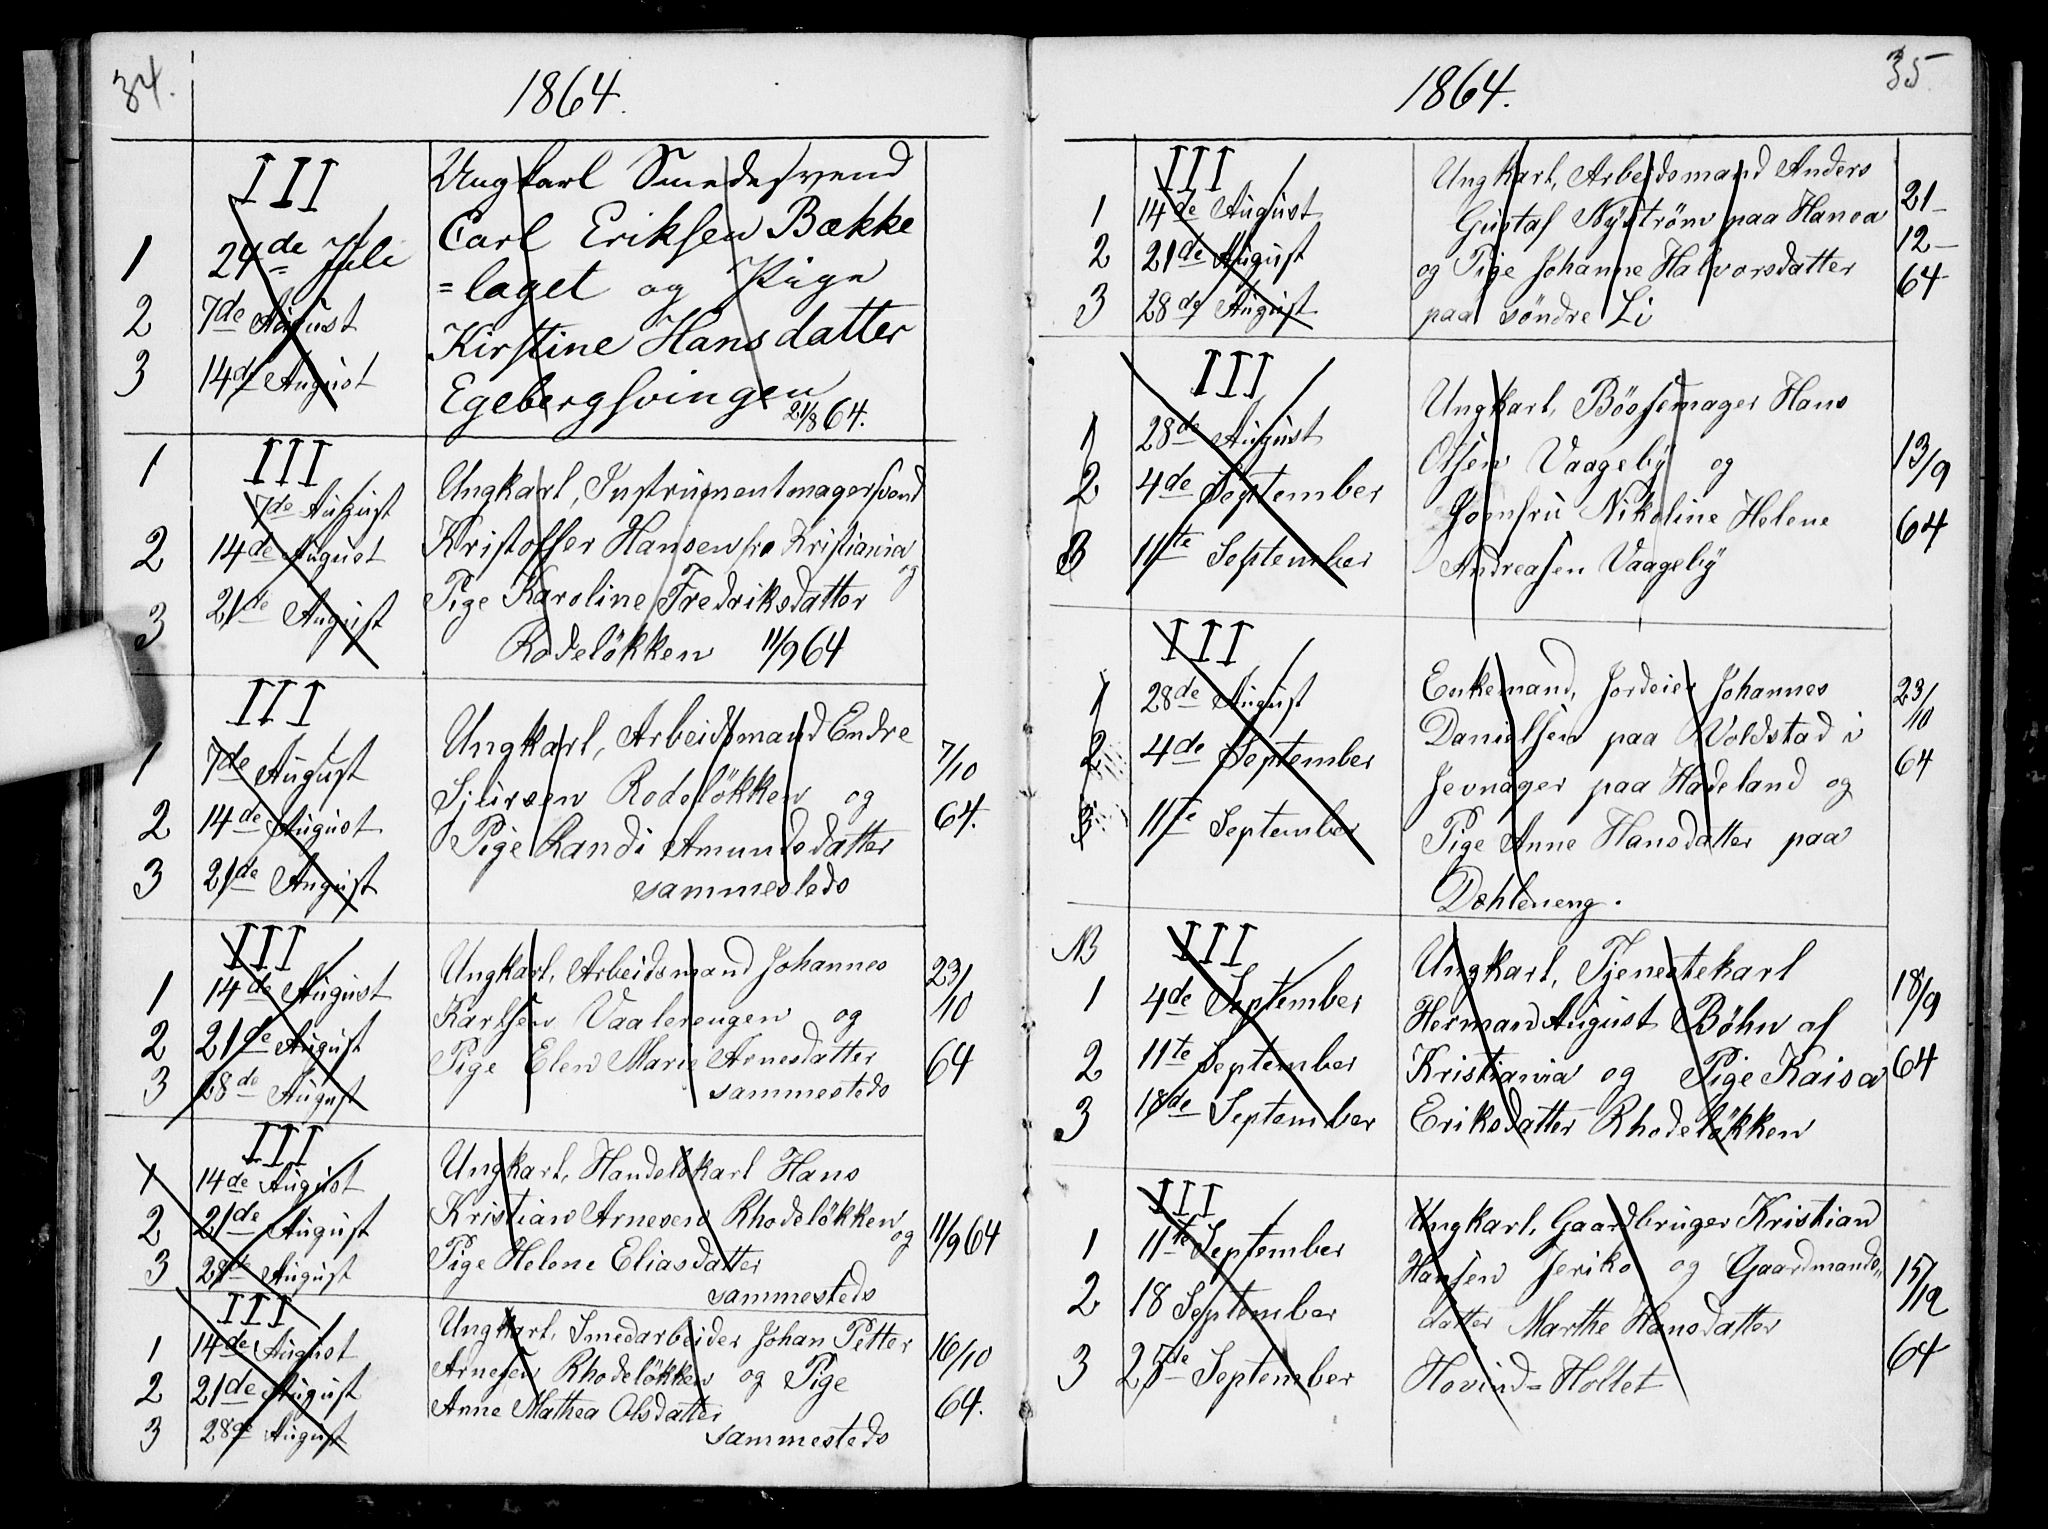 34.
1864.
III
1 24de Juli
2 7de August
3 14de August
Ungkarl Smedesvend
Carl Eriksen Bække
=laget og Pige
Kirstine Hansdatter
Egebergsvingen
21/8 64.
III
1 7de August
2 14de August
3 21de August
Ungkarl, Instrumentmagersvend
Kristoffer Hansen fra Kristiania
og
Pige Karoline Fredriksdatter
Rodeløkken 11/9 64
III
1 7de August
2 14de August
3 21de August
Ungkarl, Arbeidsmand Endre
Sjursen Rodeløkken og
Pige Randi Amundsdatter
sammesteds
7/10
64.
III
1 14de August
2 21de August
3 28de August
Ungkarl, Arbeidsmand Johannes
Karlsen Vaalerengen og
Pige Elen Marie Arnesdatter
sammesteds
23/
10
64
III
1 14de August
2 21de August
3 28de August
Ungkarl, Handelskarl Hans
Kristian Arnesen Rhodeløkken
og
Pige Helene Eliasdatter
sammesteds
11/9 64
III
1 14de August
2 21de August
3 28de August
Ungkarl, Smedarbeider Johan Petter
Arnesen Rhodeløkken og Pige
Anne Mathea Olsdatter
sammesteds
16/10
64.
35
1864.
III
1 14de August
2 21de August
3 28de August
Ungkarl, Arbeidsmand Anders
Gustaf Nyström paa Hanoa
og Pige Johanne Halvorsdatter
paa söndre Li
21-
12-
64-
III
1 28de August
2 4de September
3 11te September
Ungkarl, Bössemager Hans
Olsen Vaageby og
Jomfru Nikoline Helene
Andreasen Vaageby
13/9
64
III
1 28de August
2 4de September
3 11te September
Enkemand, Jordeier Johannes
Danielsen paa Voldstad i
Jevnager paa Hadeland og
Pige Anne Hansdatter paa
Dæhleneng.
23/
10
64
NB
III
1 4de September
2 11te September
3 18de September
Ungkarl, Tjenestekarl
Herman August Böhn af
Kristiania og Pige Kaisa
Eriksdatter Rhodeløkken
18/9
64
III
1 11te September
2 18 September
3 25de September
Ungkarl, Gaardbruger Kristian
Hansen Jeriko og Gaardmands-
datter Marthe Hansdatter
Hovind=Hollet
15/
12
64